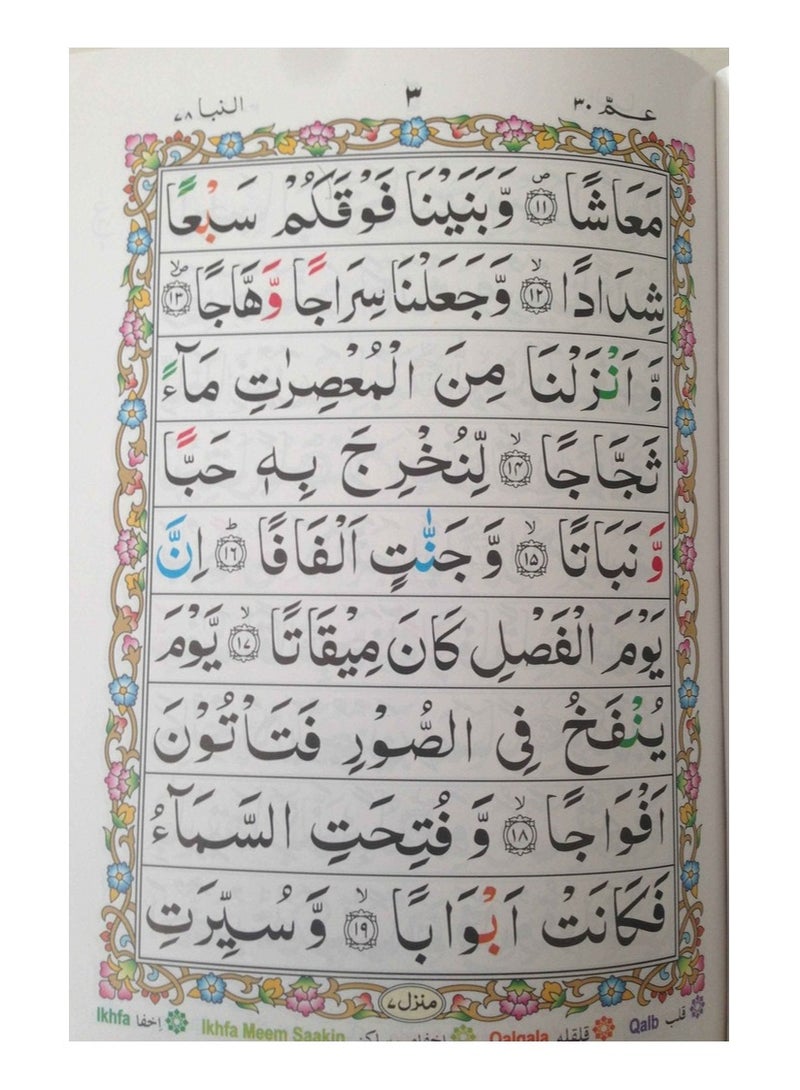 عـمّ ٣٠ ٣ النبا ٧٨
مَعَاشًا ۝١١ۙ وَّ بَنَيْنَا فَوْقَكُمْ سَبْعًا
شِدَادًا ۝١٢ۙ وَّ جَعَلْنَا سِرَاجًا وَّهَّاجًا ۝١٣ۙ
وَّ اَنْزَلْنَا مِنَ الْمُعْصِرٰتِ مَآءً
ثَجَّاجًا ۝١٤ۙ لِّنُخْرِجَ بِهٖ حَبًّا
وَّ نَبَاتًا ۝١٥ۙ وَّ جَنّٰتٍ اَلْفَافًا ۝١٦ؕ اِنَّ
يَوْمَ الْفَصْلِ كَانَ مِيْقَاتًا ۝١٧ۙ يَّوْمَ
يُنْفَخُ فِى الصُّوْرِ فَتَاْتُوْنَ
اَفْوَاجًا ۝١٨ۙ وَّ فُتِحَتِ السَّمَآءُ
فَكَانَتْ اَبْوَابًا ۝١٩ۙ وَّ سُيِّرَتِ
منزل ٧
قلب Qalb قلقله Qalqala Ikhfa Meem Saakin اِخفا Ikhfa